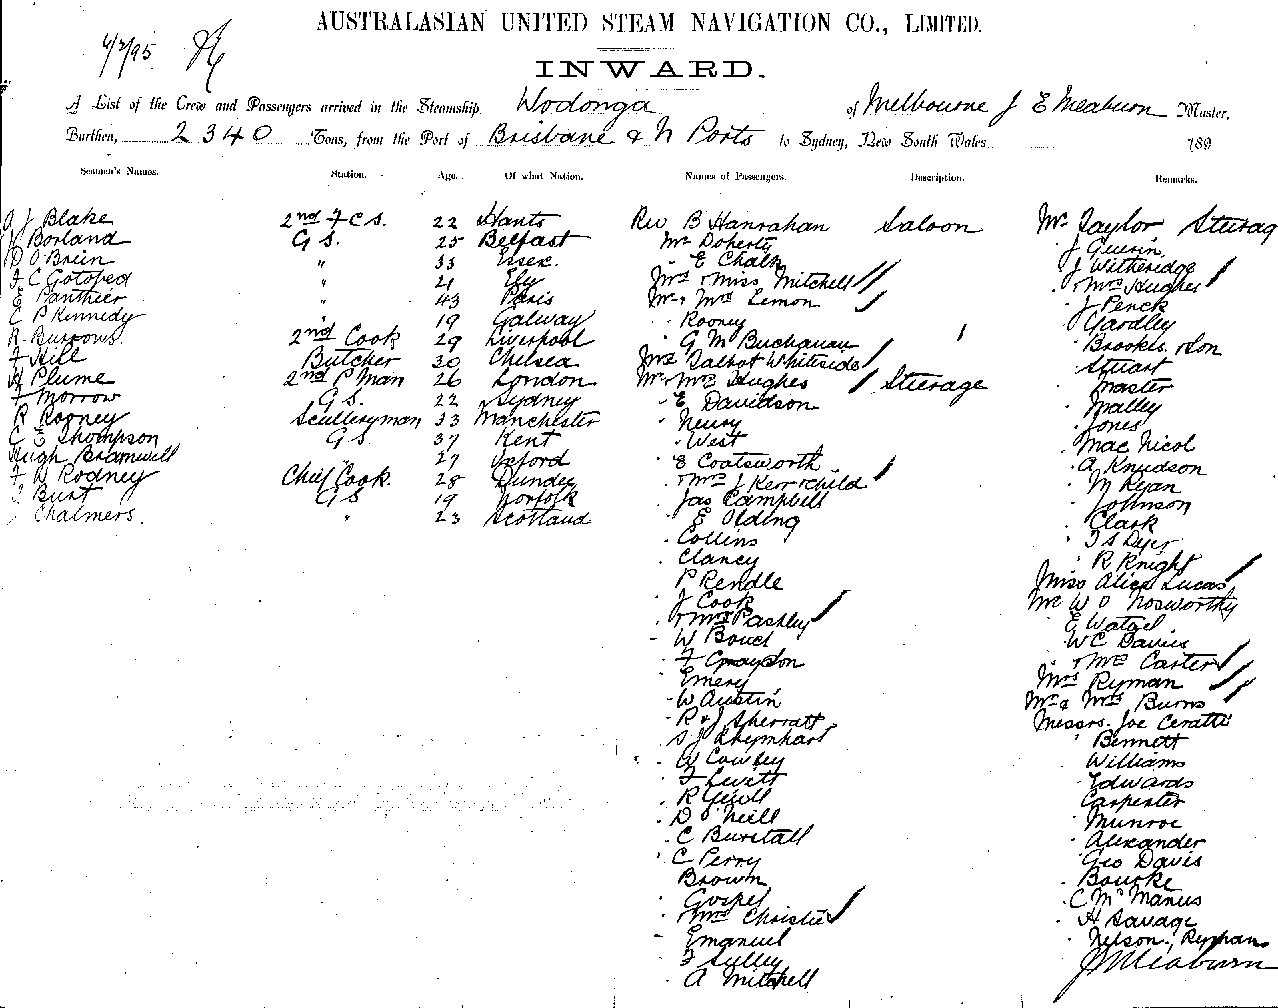 AUSTRALASIAN UNITED STEAM NAVIGATION CO., LIMITED.
4/2/95
INWARD.
A List of the Crew and Passengers arrived in the Steamship Wodonga of Melbourne J E Meaburn Master,
Burthen, 2340 Tons, from the Port of Brisbane & N Ports to Sydney, New South Wales 189
Seamen's Names. Station. Age. Of what Nation. Names of Passengers. Description. Remarks.
J Blake 2nd F C S. 22 Hants
Borland G S. 25 Belfast
D O'Brien " 33 Essex
F C Gotobed " 21 Ely
E Panthier " 43 Paris
C P Kennedy " 19 Galway
R Burrows 2nd Cook 29 Liverpool
F Hill Butcher 30 Chelsea
H Plume 2nd P Man 26 London
F Morrow G S. 22 Sydney
R Rooney Sculleryman 33 Manchester
C E Thompson G S 37 Kent
Hugh Bramwell 27 Oxford
F W Rodney Chief Cook. 28 Dundee
Bust G S 19 Norfolk
Chalmers. " 23 Scotland
Rev B Hanrahan Saloon
Mr Doherty
E Chalk
Mrs & Miss Mitchell
Mr & Mrs Lemon
Rooney
G M Buchanan
Mrs Talbot Whiteside
Mr & Mrs Hughes Steerage
E Davidson
Henry
West
E Coatsworth
& Mrs J Kerr & child
Jas Campbell
E Olding
Collins
Clancy
P Rendle
J Cook
& Mrs Pashley
W Bouel
F Graydon
Emery
W Austin
R & J Sherratt
S J Rheinhart
W Cowley
F Levitt
R Geill
D O'Neill
C Burstall
C Perry
Brown
Gospel
& Mrs Christie
Emanuel
F Sulley
A Mitchell
Mr Taylor Steerag
J Guerin
J Witheridge
& Mrs Hughes
J Penck
Yardley
Brookes & Son
Stuart
Master
Malley
Jones
Mac Nicol
A Knudson
M Ryan
Johnson
Clark
T S Dyer
R Knight
Miss Alice Lucas
Mr W O Nosworthy
E Watzel
W C Davies
& Mrs Carter
Mrs Ryman
Mr & Mrs Burns
Messrs. Joe Ceratti
Bennett
Williams
Edwards
Carpenter
Munroe
Alexander
Geo Davis
Bourke
C McManus
H Savage
Nelson, Ryman
J E Meaburn